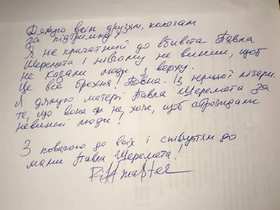 Дякую всім друзям, колегам
за підтримку!
Я не причетний до вбивства Павла
Шеремета і нікому не вином, щоб
не казали люди зверху.
Це все брехня! Повна. Із першої літери.
Я дякую матері Павла Шеремета за
те, що вона не хоче, щоб страждали
невинні люди!
З повагою до всіх і співчуттям до
мами Павла Шеремета.
Riffmaster